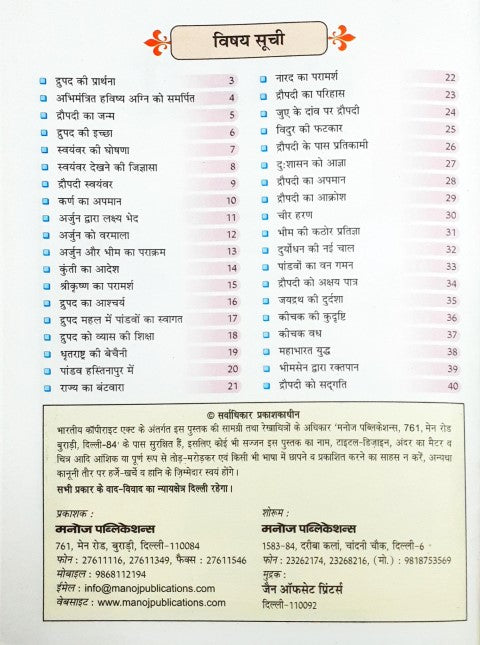 विषय सूची
द्रुपद की प्रार्थना 3
अभिमंत्रित हविष्य अग्नि को समर्पित 4
द्रौपदी का जन्म 5
द्रुपद की इच्छा 6
स्वयंवर की घोषणा 7
स्वयंवर देखने की जिज्ञासा 8
द्रौपदी स्वयंवर 9
कर्ण का अपमान 10
अर्जुन द्वारा लक्ष्य भेद 11
अर्जुन को वरमाला 12
अर्जुन और भीम का पराक्रम 13
कुंती का आदेश 14
श्रीकृष्ण का परामर्श 15
द्रुपद का आश्चर्य 16
द्रुपद महल में पांडवों का स्वागत 17
द्रुपद को व्यास की शिक्षा 18
धृतराष्ट्र की बेचैनी 19
पांडव हस्तिनापुर में 20
राज्य का बंटवारा 21
नारद का परामर्श 22
द्रौपदी का परिहास 23
जुए के दांव पर द्रौपदी 24
विदुर की फटकार 25
द्रौपदी के पास प्रतिकामी 26
दुःशासन को आज्ञा 27
द्रौपदी का अपमान 28
द्रौपदी का आक्रोश 29
चीर हरण 30
भीम की कठोर प्रतिज्ञा 31
दुर्योधन की नई चाल 32
पांडवों का वन गमन 33
द्रौपदी को अक्षय पात्र 34
जयद्रथ की दुर्दशा 35
कीचक की कुदृष्टि 36
कीचक वध 37
महाभारत युद्ध 38
भीमसेन द्वारा रक्तपान 39
द्रौपदी को सद्गति 40
© सर्वाधिकार प्रकाशकाधीन
भारतीय कॉपीराइट एक्ट के अंतर्गत इस पुस्तक की सामग्री तथा रेखाचित्रों के अधिकार 'मनोज पब्लिकेशन्स, 761, मेन रोड
बुराड़ी, दिल्ली-84' के पास सुरक्षित हैं, इसलिए कोई भी सज्जन इस पुस्तक का नाम, टाइटल-डिज़ाइन, अंदर का मैटर व
चित्र आदि आंशिक या पूर्ण रूप से तोड़-मरोड़कर एवं किसी भी भाषा में छापने व प्रकाशित करने का साहस न करें, अन्यथा
कानूनी तौर पर हर्जे-खर्चे व हानि के ज़िम्मेदार स्वयं होंगे।
सभी प्रकार के वाद-विवाद का न्यायक्षेत्र दिल्ली रहेगा।
प्रकाशक :
मनोज पब्लिकेशन्स
761, मेन रोड, बुराड़ी, दिल्ली-110084
फोन : 27611116, 27611349, फैक्स : 27611546
मोबाइल : 9868112194
ईमेल : info@manojpublications.com
वेबसाइट : www.manojpublications.com
शोरूम :
मनोज पब्लिकेशन्स
1583-84, दरीबा कलां, चांदनी चौक, दिल्ली-6
फोन : 23262174, 23268216, (मो.) : 9818753569
मुद्रक :
जैन ऑफसेट प्रिंटर्स
दिल्ली-110092